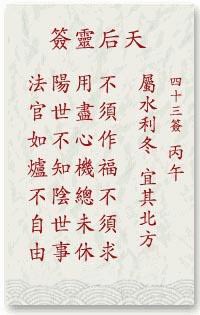 天后靈簽
四十三簽 丙午
屬水利冬 宜其北方
不須作福不須求
用盡心機總未休
陽世不知陰世事
法官如爐不自由